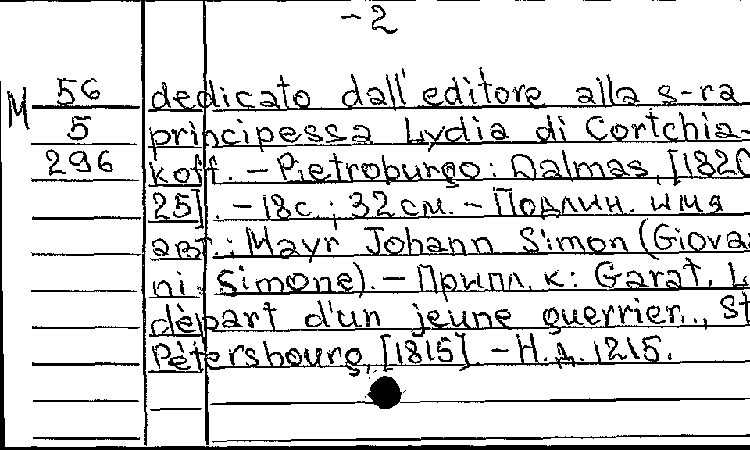 -2
M 56 dedicato dall'editore alla s-ra
5 principessa Lydia di Cortchia-
296 koff. - Pietroburgo: Dalmas, [1820
25]. - 18 с.; 32 см. - Подлин. имя
авт.: Mayr Johann Simon (Giova
ni Simone). - Припл. к: Garat. L
départ d'un jeune guerrier., St
Pétersbourg, [1815]. - Н.д. 1215.